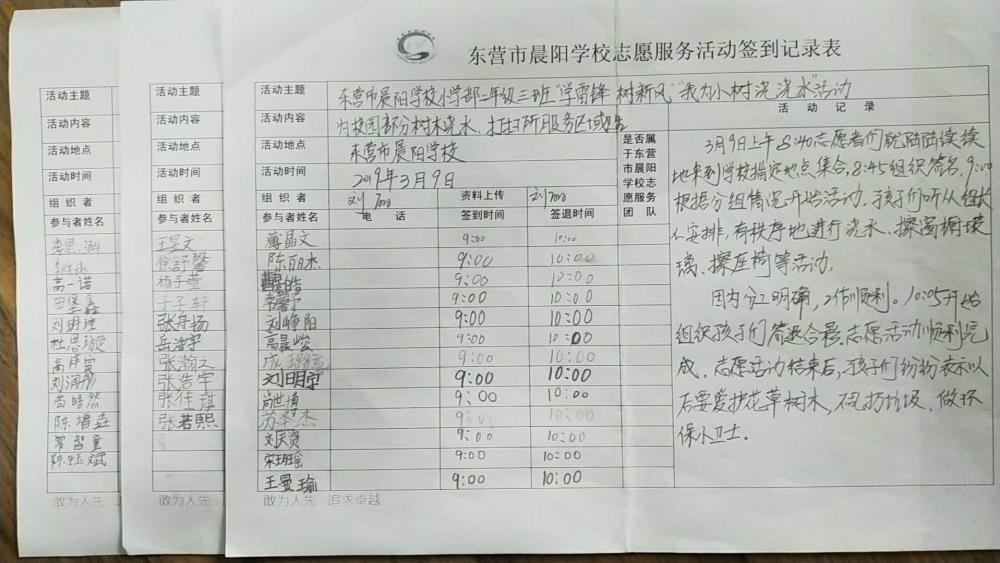 东营市晨阳学校志愿服务活动签到记录表
活动主题
东营市晨阳学校小学部二年级三班"学雷锋 树新风""我为小树浇浇水"活动
活动内容
为校园部分树木浇水、打扫所用服务区域
活动地点
东营市晨阳学校
活动时间
2019年3月9日
组织者
刘
资料上传
刘
参与者姓名
电话
签到时间
签退时间
是否属于东营市晨阳学校志愿服务团队
薄晶文 9:00 10:00
陈丽杰 9:00 10:00
9:00 10:00
9:00 10:00
刘峥阳 9:00 10:00
高晨峻 9:00 10:00
9:00 10:00
刘明宇 9:00 10:00
尚世博 9:00 10:00
9:00 10:00
9:00 10:00
宋班瑶 9:00 10:00
王曼瑜 9:00 10:00
活动记录
3月9日上午8:40志愿者们就陆陆续续
地来到学校指定地点集合,8:45组织签名,9:00
根据分组情况开始活动。孩子们听从组长
安排,有秩序地进行浇水、擦窗橱玻
璃、擦座椅等活动。
因为分工明确,工作顺利。10:05开始
组织孩子们签退合影,志愿活动顺利完
成。志愿活动结束后,孩子们纷纷表示以
后要爱护花草树木,不乱扔垃圾,做环
保小卫士。
敢为人先 追求卓越
活动主题
活动内容
活动地点
活动时间
组织者
参与者姓名
王昱文
徐舒馨
杨子萱
于子轩
张舟扬
岳浩宇
张瀚之
张浩宇
张佳琪
张君熙
敢为人先
活动主题
活动内容
活动地点
活动时间
组织者
参与者姓名
李思涵
高一诺
刘玥瑾
杜思璇
刘润彤
苟皓然
常智童
陈钰斌
敢为人先